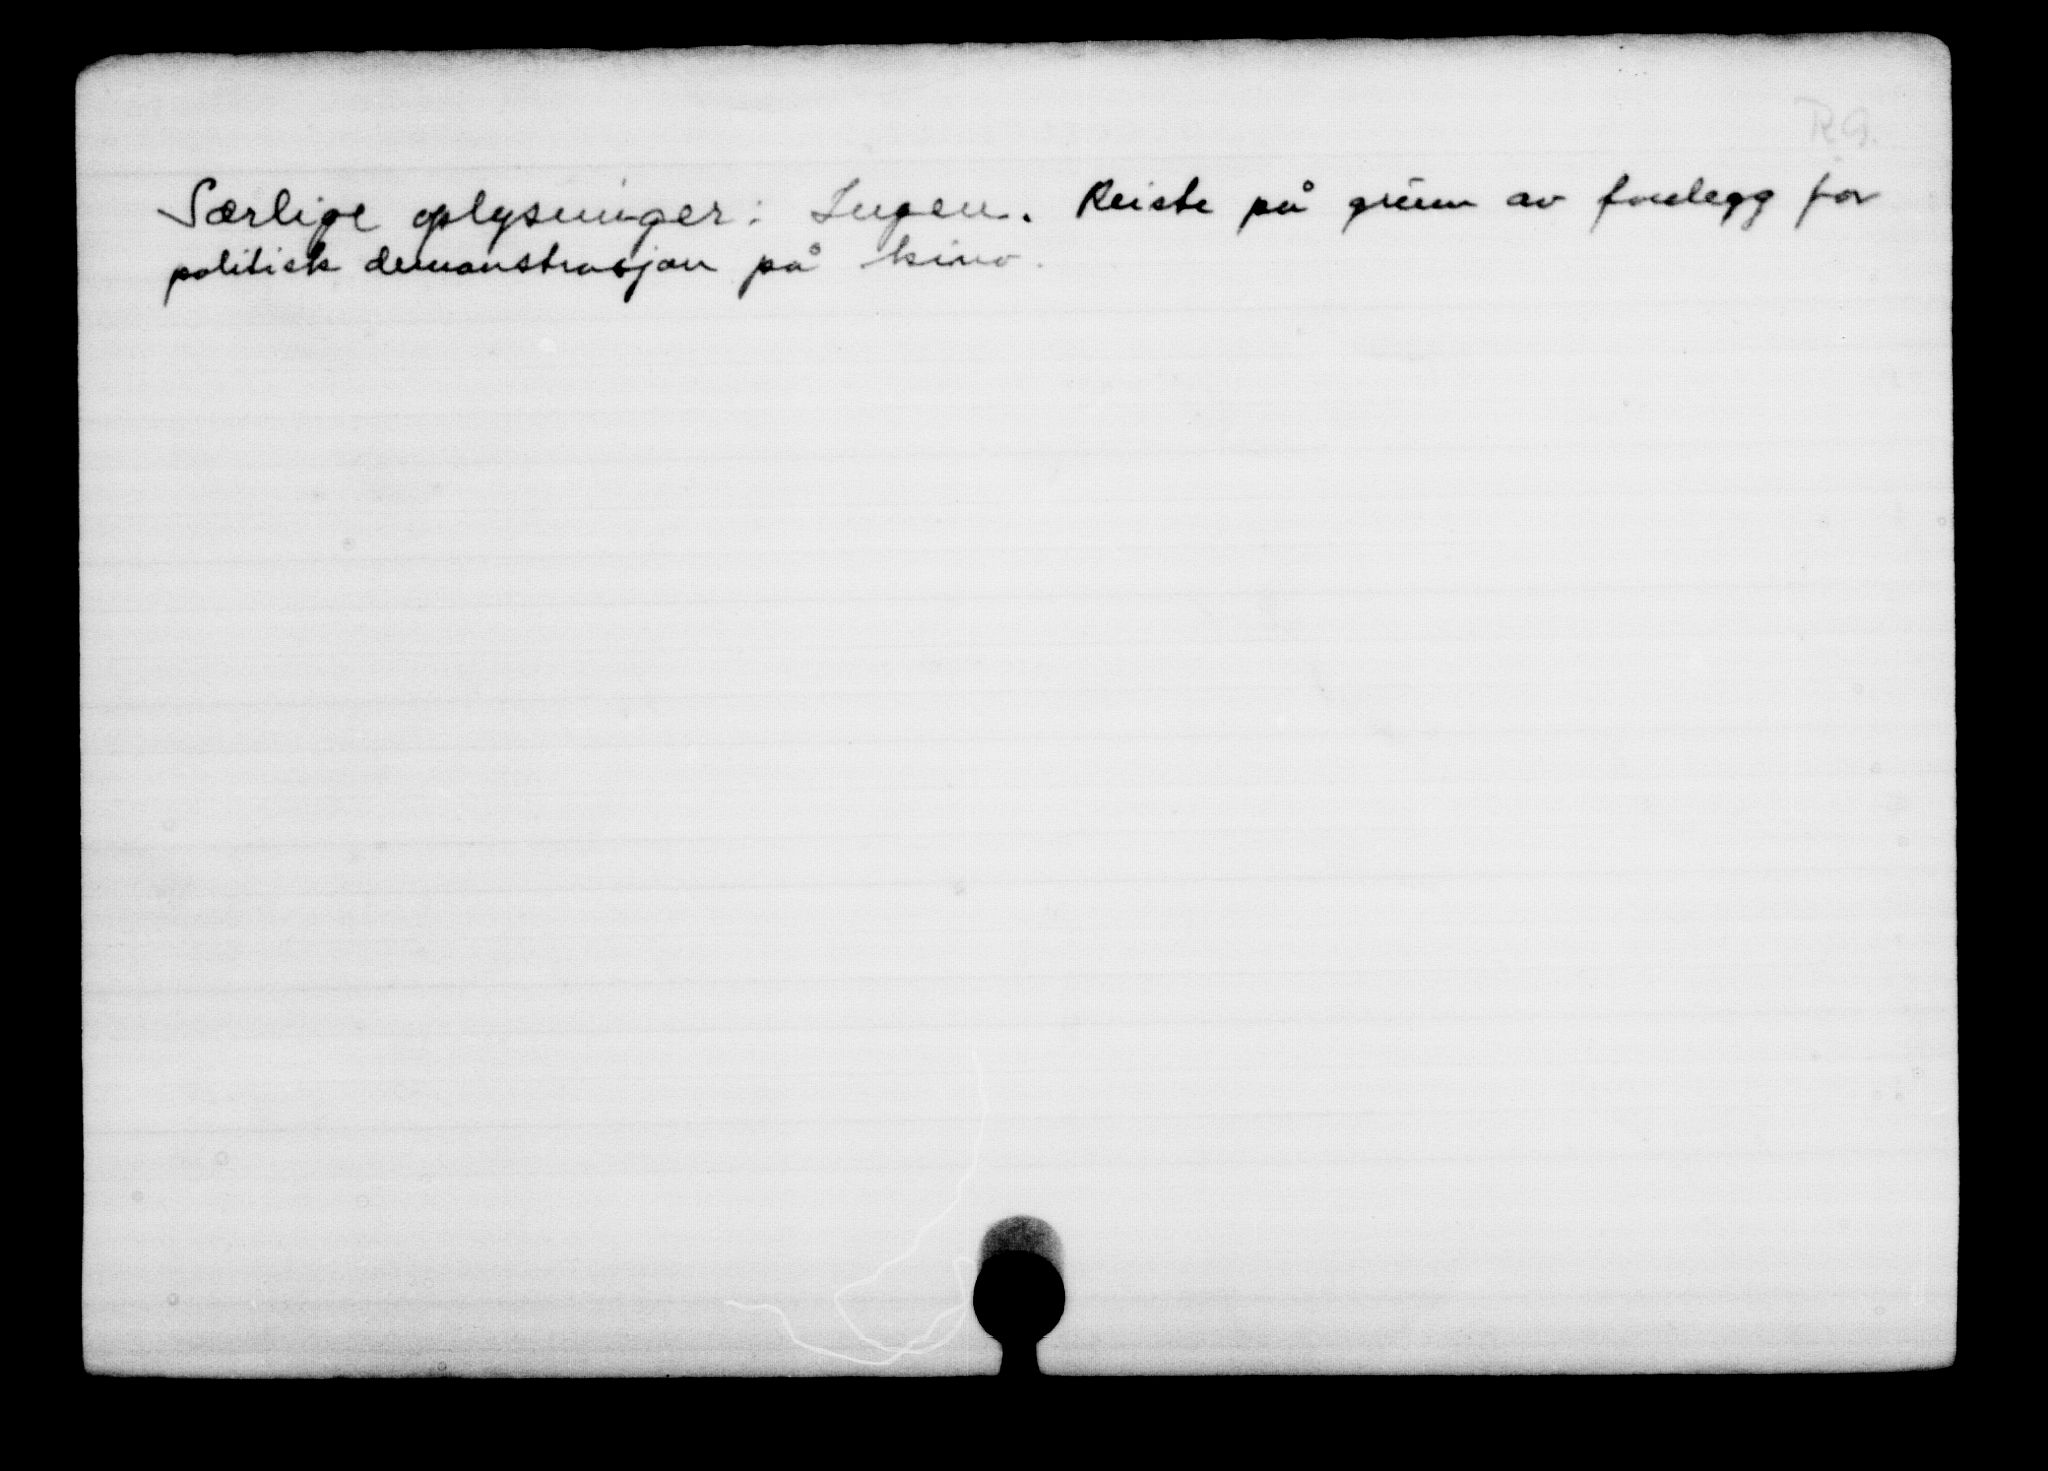 R.G.
Særlige oplysninger: Ingen. Reiste på grünn av forelegg for
politisk demonstrasjon på kino.